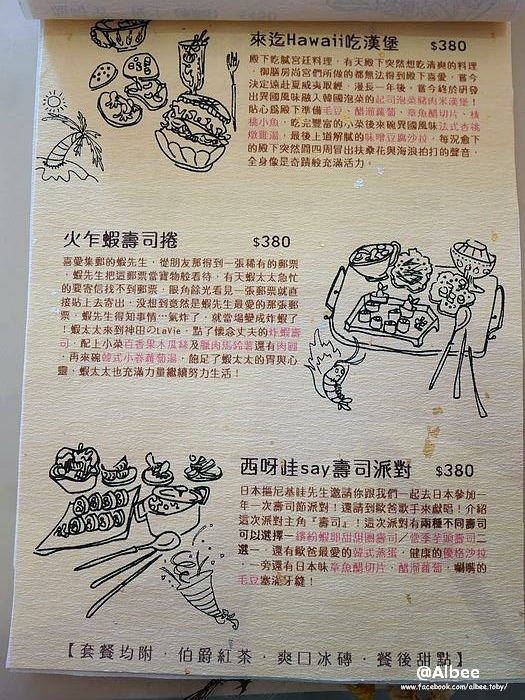 來迄Hawaii吃漢堡 $380
殿下吃膩宮廷料理，有天殿下突然想吃清爽的料理
，御膳房尚宮們所做的都無法得到殿下喜愛，嘗今
決定遠赴夏威夷取經，漫長一年後，嘗今終於研發
出異國風味融入韓國泡菜的起司泡菜豬肉米漢堡！
貼心為殿下準備毛豆、醋溜蘿蔔、章魚醋切片、核
桃小魚，吃完豐富的小菜後來碗異國風味法式杏桃
燉雞湯，最後上道解膩的味噌豆腐沙拉，每況愈下
的殿下突然間四周冒出扶桑花與海浪拍打的聲音，
全身像是奇蹟般充滿活力。
火乍蝦壽司捲 $380
喜愛集郵的蝦先生，從朋友那得到一張稀有的郵票
，蝦先生把這郵票當寶物般看待，有天蝦太太急忙
的要寄信找不到郵票，眼角餘光看見一張郵票就直
接貼上去寄出，沒想到竟然是蝦先生最愛的那張郵
票，蝦先生得知事情…氣炸了，就當場變成炸蝦了
！蝦太太來到神田のLaVie，點了懷念丈夫的炸蝦壽
司，配上小菜百香果木瓜絲及臘肉馬鈴薯還有肉圓
，再來碗韓式小卷蘿蔔湯，飽足了蝦太太的胃與心
靈，蝦太太也充滿力量繼續努力生活！
西呀哇say壽司派對 $380
日本摳尼基哇先生邀請你跟我們一起去日本參加一
年一次壽司節派對！還請到歐爸歌手來獻唱！介紹
這次派對主角『壽司』！這次派對有兩種不同壽司
可以選擇—繽紛蝦耶甜甜圈壽司／當季芋頭壽司二
選一，還有歐爸最愛的韓式蒸蛋，健康的優格沙拉
，一旁還有日本味章魚醋切片、醋溜蘿蔔，唰嘴的
毛豆塞滿牙縫！
【套餐均附．伯爵紅茶．爽口冰磚．餐後甜點】
@Albee
www.facebook.com/albee.toby/